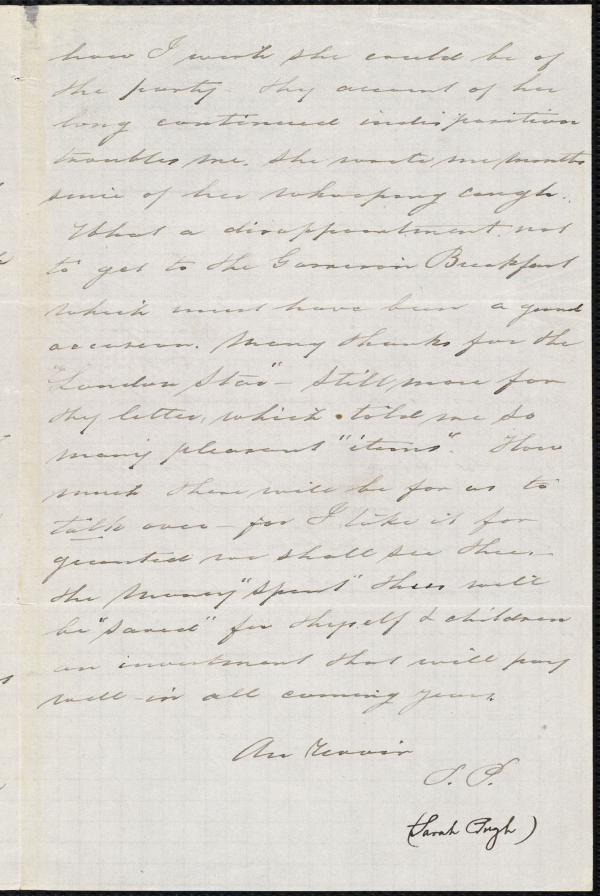 how I wish she could be of
the party - thy account of her
long continued indisposition
troubles me. She wrote me months
since of her whooping cough.
What a disappointment not
to get to the Garrison Breakfast
which must have been a grand
occasion. Many thanks for the
"London Star" - still more for
thy letter, which told me so
many pleasant "items". How
much there will be for us to
talk over - for I take it for
granted we shall see thee -
the money "spent" thus will
be "saved" for thyself & children
an investment that will pay
well - in all coming years.
Au Revoir
S. P.
(Sarah Pugh)